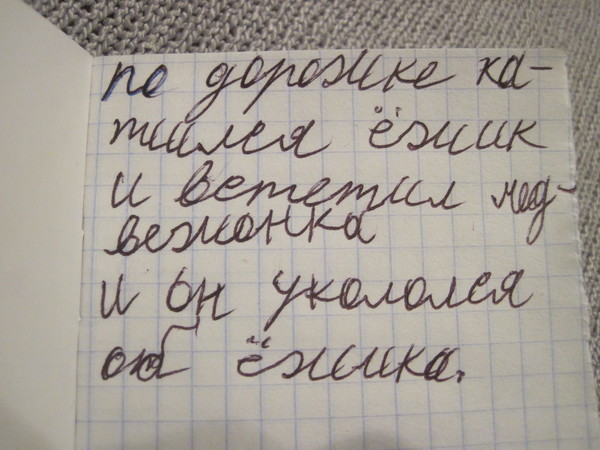 по дорожке ка-
тился ёжик
и встетил мед-
вежонка
и он укололся
об ёжика.